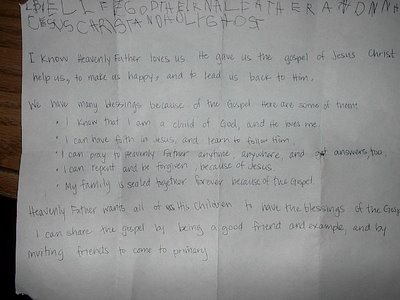 I know Heavenly Father loves us. He gave us the gospel of Jesus Christ
help us, to make us happy, and to lead us back to Him.
We have many blessings because of the Gospel. Here are some of them:
• I know that I am a child of God, and He loves me.
• I can have faith in Jesus, and learn to follow Him
• I can pray to Heavenly Father anytime, anywhere, and get answers, too.
• I can repent and be forgiven, because of Jesus.
• My family is sealed together forever because of the Gospel.
Heavenly Father wants all of His Children to have the blessings of the Gospel
I can share the gospel by being a good friend and example, and by
inviting friends to come to primary